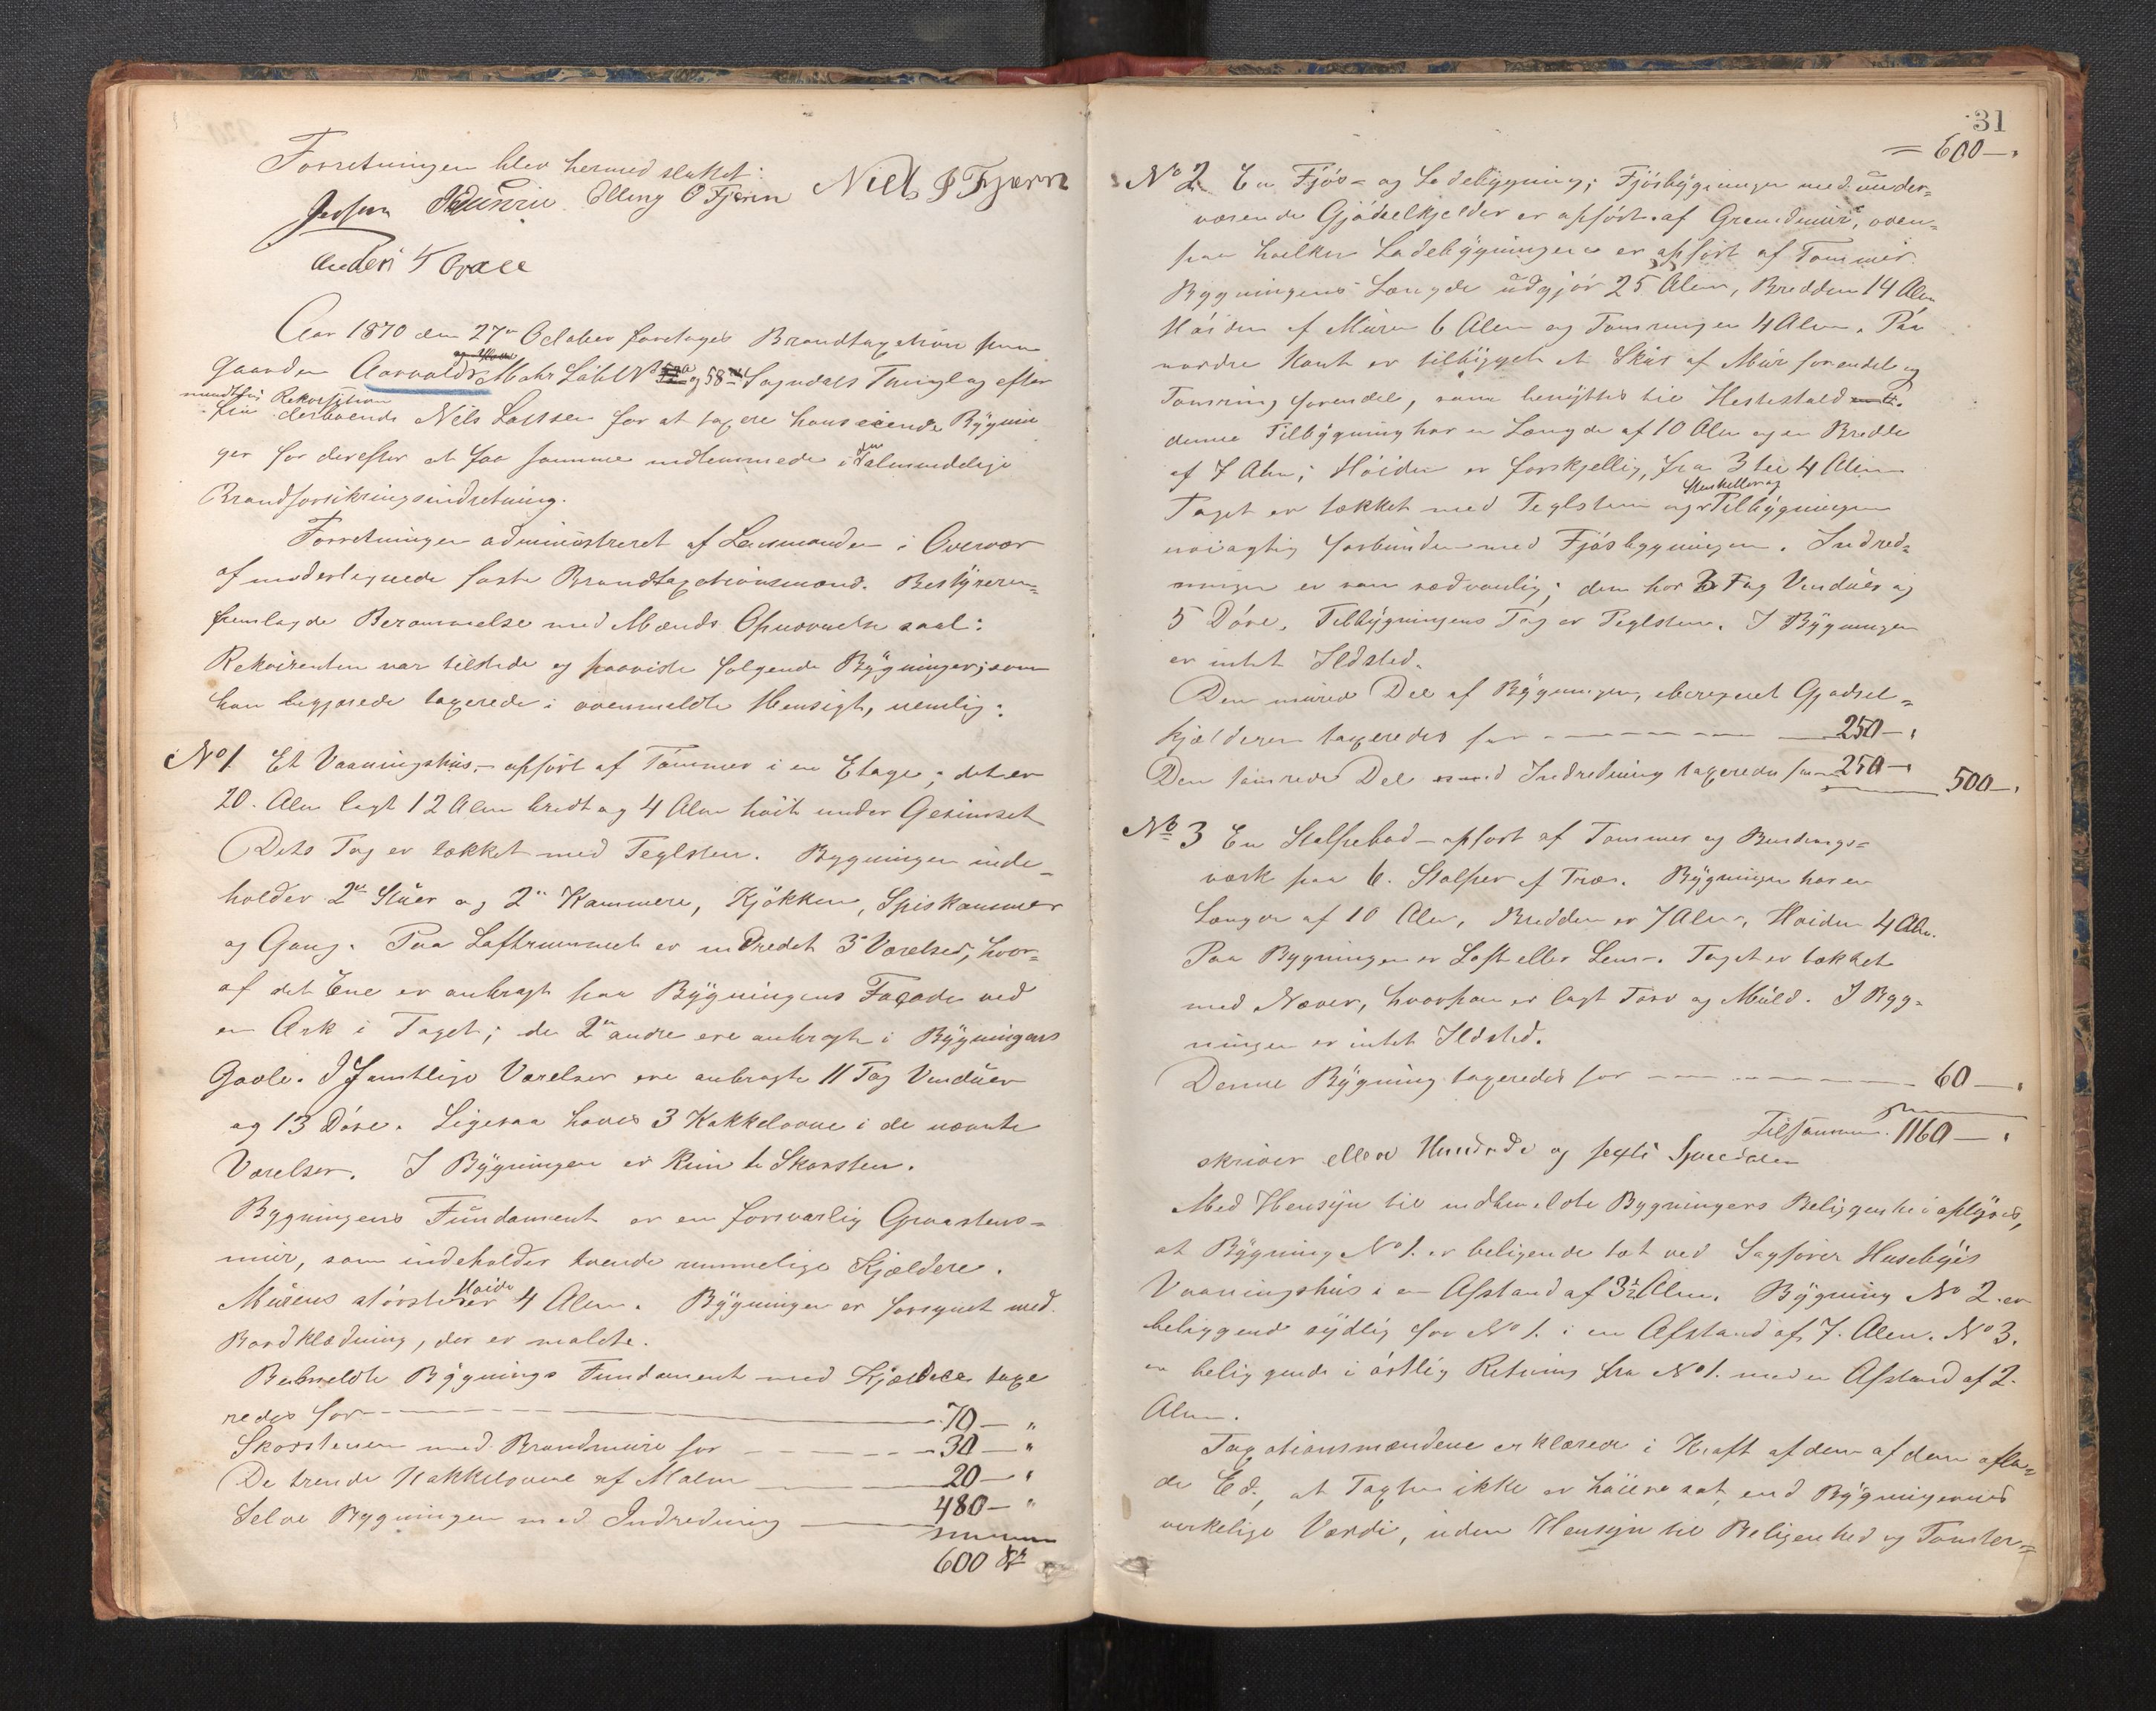 Forretningen blev hermed sluttet:
Elling O Fjærn Niels J Fjærn
Aar 1870 den 27de October foretoges Brandtaxation paa
Gaarden Aarvolds Matr Løbe No og 58 Sogndals Thinglag efter
mundtlig Rekvisition
fra derboende Niels Larssen for at taxere hans eiende Bygnin
ger for derefter at faa samme indlemmede i den almindelige
Brandforsikringsindretning.
Forretningen administreret af Lensmanden i Overvær
af undertegnede faste Brandtaxationsmænd. Bestyreren
fremlagde Berammelse med Mænds Opnævnelse saal:
Rekvirenten var tilstede og paaviste følgende Bygninger, som
han begjærede taxerede i ovenmeldte Hensigt, nemlig:
No 1. Et Vaaningshus, opført af Tømmer i en Etage; det er
20 Alen langt 12 Alen bredt og 4 Alen høit under Gesimset
Dets Tag er tækket med Teglsten. Bygningen inde-
holder 2de Stuer og 2de Kammere, Kjøkken, Spiskammer
og Gang. Paa Loftrummet er indredet 3de Værelser, hvor=
af det Ene er anbragt paa Bygningens Façade ved
en Ark i Taget; de 2de andre ere anbragte i Bygningens
Gavle. I Samtlige Værelser ere anbragte 11 Fag Vinduer
og 13 Døre. Ligesaa haves 3 Kakkelovne i de nævnte
Værelser. I Bygningen er Skorsten.
Bygningens Fundament er en forsvarlig Graastens=
mur, som indeholder tvende rummelige Kjældere.
Murens største Høide er 4 Alen. Bygningen er forsynet med
Bordklædning, der er malede.
Bemeldte Bygnings Fundament med Kjældere taxe
redes for 70 — "
Skorstenen med Brandmure for 30 — "
De trende Kakkelovne af Malm 20 — "
Selve Bygningen med Indredning 480 — "
600 Sp
31
= 600 — "
No 2. En Fjøs- og Ladebygning; Fjøsbygningen med under=
værende Gjødselkjelder er opført af Graastensmur, oven=
paa hvilken Ladebygningen er opført af Tømmer.
Bygningens Længde udgjør 25 Alen, Bredden 14 Alen
Høiden af Muren 6 Alen og Tømringen 4 Alen. Paa
nordre Kant er tilbygget et Skur af Mur forendel og
Tømring forendel, som benyttes til Hestestald
denne Tilbygning har en Længde af 10 Alen og en Bredde
af 7 Alen; Høiden er forskjellig, fra 3 til 4 Alen
Stenheller og
Taget er tækket med Teglsten og Tilbygningen
nøiagtig forbunden med Fjøsbygningen. Indred=
ningen er som sædvanlig; den har Fag Vinduer og
5 Døre. Tilbygningens Tag er Teglsten. I Bygningen
er intet Ildsted.
Den murede Del af Bygningen, iberegnet Gjødsel=
kjelderen taxeredes for 250 — "
Den tømrede Del med Indredning taxeredes for 250 — " 500 — "
No 3 En Stolpebod — opført af Tømmer og Bindings=
værk paa 6 Stolper af Træ. Bygningen har en
Længde af 10 Alen, Bredden er 7 Alen, Høiden 4 Alen.
Paa Bygningen er Loft eller Lem. Taget er tækket
med Næver, hvorpaa er lagt Torv og Muld. I Byg=
ningen er intet Ildsted.
Denne Bygning taxeredes for 60 — "
Tilsammen 1160 — "
skriver elleve Hundrede og sexti Speciedaler
Med Hensyn til indbemeldte Bygningers Beliggenhed oplyses,
at Bygning No 1. er beligende tæt ved Sagfører Husebyes
Vaaningshus i en Afstand af 3½ Alen. Bygning No 2 er
beliggend sydlig for No 1. i en Afstand af 7. Alen. No 3.
er beliggende i østlig Retning fra No 1. med en Afstand af 2.
Alen.
Taxationsmændene erklærede i Kraft af den af dem aflag=
de Ed, at Taxten ikke er høiere sat, end Bygningernes
virkelige Værdi, uden Hensyn til Beligenhed og Tomter=